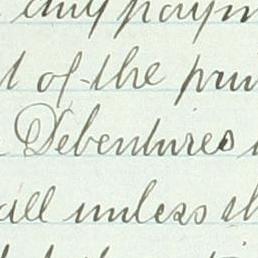 any paym
of the prin
Debentures
all unless sh